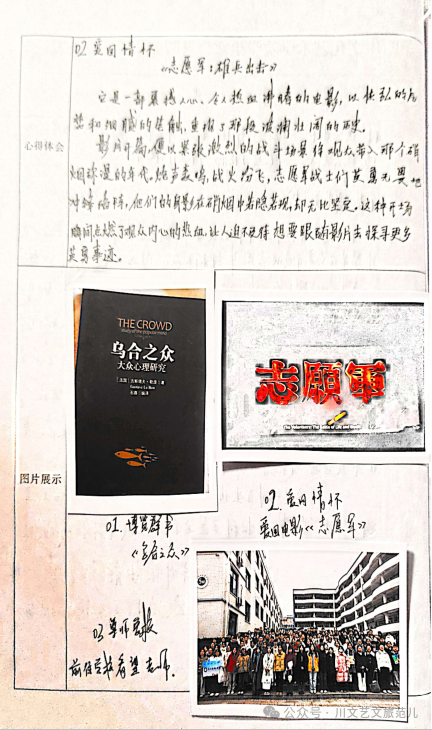 02 爱国情怀
《志愿军:雄兵出击》
心得体会
这是一部震撼人心、令人热血沸腾的电影,以
和细腻的
影片开篇,便以紧张激烈的战斗场景将观众带入那个硝
烟弥漫的年代。炮声轰鸣,战火纷飞,志愿军战士们英勇无畏地
冲锋陷阵,他们的身影在硝烟中若隐若现,却无比坚定。这种开场
瞬间点燃了观众内心的热血,让人迫不及待想要跟随影片去探寻更多
英勇事迹。
图片展示
THE CROWD
study of the popular mind
乌合之众
大众心理研究
志願軍
01. 博览群书
《乌合之众》
02. 爱国情怀
爱国电影《志愿军》
03
前往学校看望老师.
公众号·川文艺文旅范儿